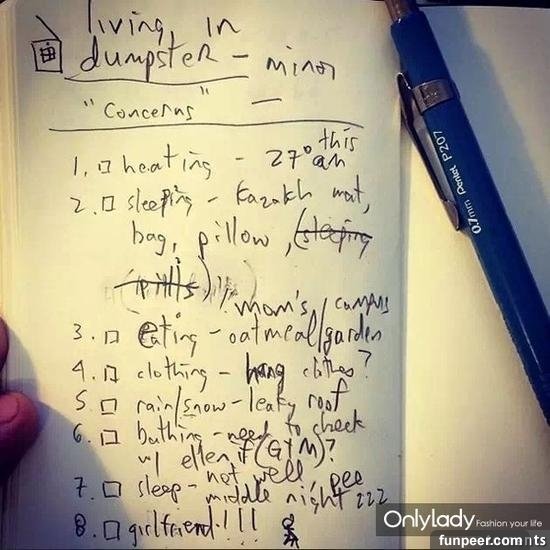 living in
dumpster - minor
"concerns" -
1. heating - 27° this am
2. sleeping - Kazakh mat,
bag, pillow, (sleeping
pills)
mom's / campus
3. eating - oatmeal/garden
4. clothing - hang clothes?
5. rain/snow - leaky roof
6. bathing - need to check
w/ ellen if (GYM)?
7. sleep - not well, pee
middle night zzz
8. girlfriend!!!
0.7mm Pentel P207
Onlylady Fashion your life
funpeer.com